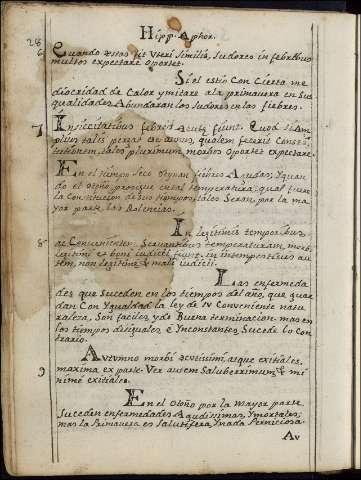 Hipp. Aphor.
28
6
Quando æstas fit Veri similis, sudores in febribus
multos expectare oportet.
Si el estio Con Cierta me
diocridad de Calor ymitare a la primavera en sus
qualidades Abundaran los sudores en las fiebres.
7
In siccitatibus febres Acutæ fiunt. Quod si Am
plius talis perstet annus, qualem fecerit Consti
tutionem, tales plurimum, morbos oportet expectare.
En el tiempo Seco Reynan fiebres Agudas, y quan
do el otoño, prosigue en tal temperatura, qual fuere
la Constitucion de sus tiempos, tales Seran, por la ma
yor parte, las dolencias.
8
In legitimis temporibus
ac Convenienter, Servantibus temperaturam, morbi
legitimi et boni iudicii fiunt, in intempestivis au
tem, non legitimi, & mali iudicii.
Las enfermeda
des que Suceden en los tiempos del año, que guar
dan Con Ygualdad la ley de su Conveniente natu
raleza, Son faciles, y de Buena terminacion. mas en
los tiempos disiguales e Ynconstantes, Sucede lo Con
trario.
9
Autumno morbi acutissimi atque exitiales.
maxima ex parte. Ver autem Saluberrimum, & mi
nime exitiale.
En el Otoño por la mayor parte
Suceden enfermedades Agudissimas, y mortales;
mas la Primavera es salutifera, y nada Perniciosa.
Au